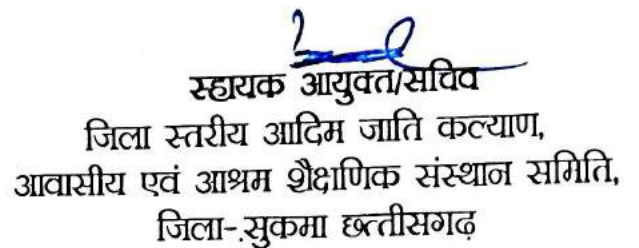 स्हायक आयुक्त/सचिव
जिला स्तरीय आदिम जाति कल्याण,
आवासीय एवं आश्रम शैक्षणिक संस्थान समिति,
जिला-.सुकमा छत्तीसगढ़